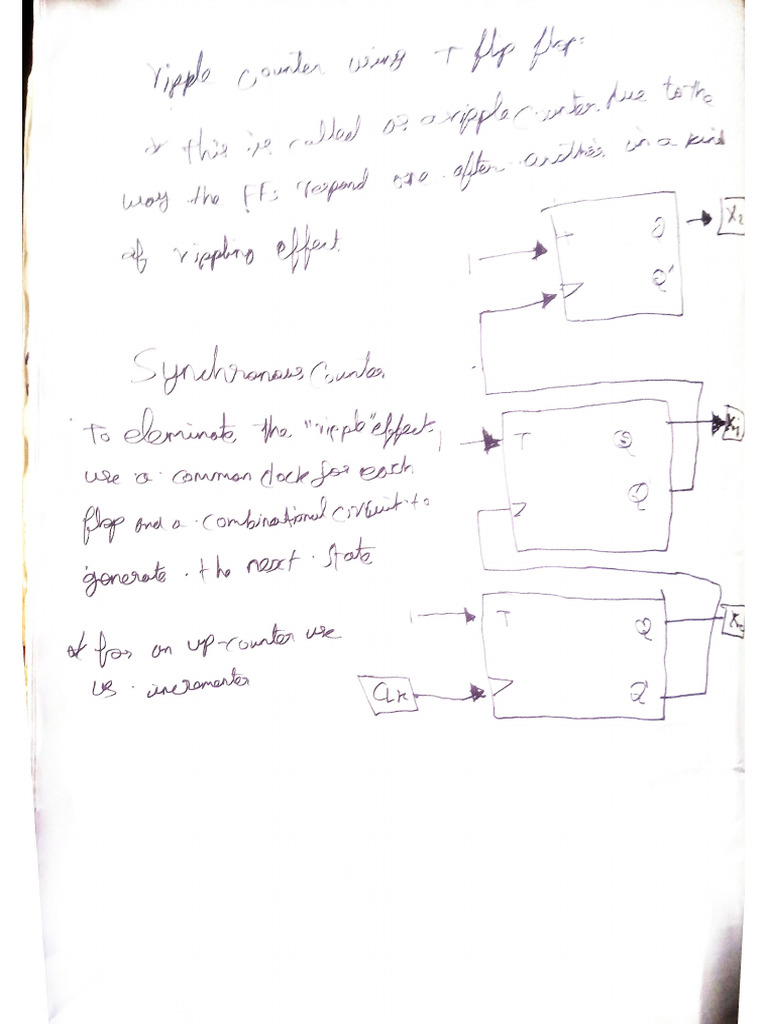 ripple counter using T flip flop:
* this is called as a ripple counter due to the
way the FFs respond one after another in a kind
of rippling effect.
1 T Q X2
Q'
Synchronous Counter
To eleminate the "ripple" effect,
use a common clock for each
flop and a combinational circuit to
generate the next state
* for an up-counter use
us incrementer
1 T Q X1
Q'
1 T Q
Q'
CLK